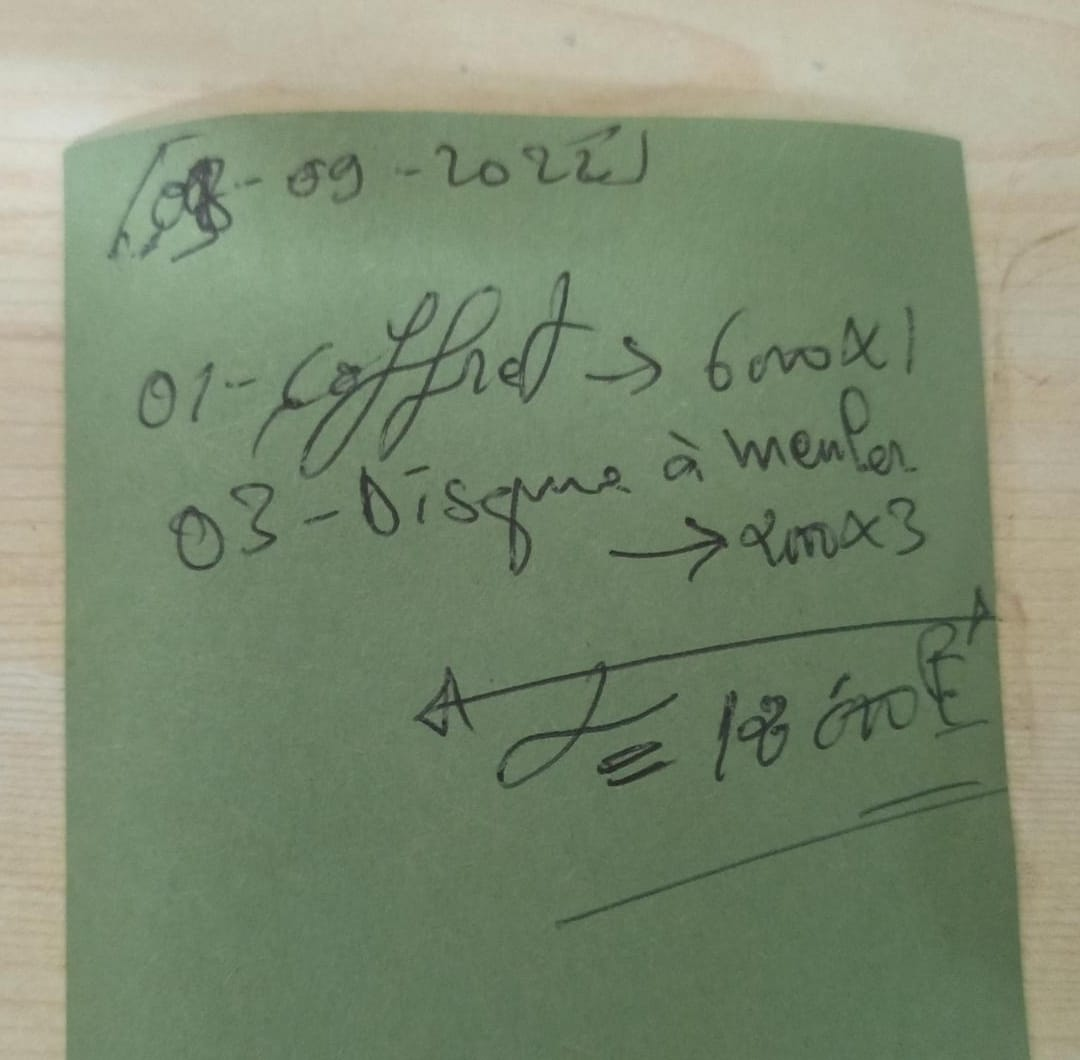 [08-09-2022]
01-Coffret → 6000x1
03-Disque à meuler
→ 2000x3
T = 18 000 F